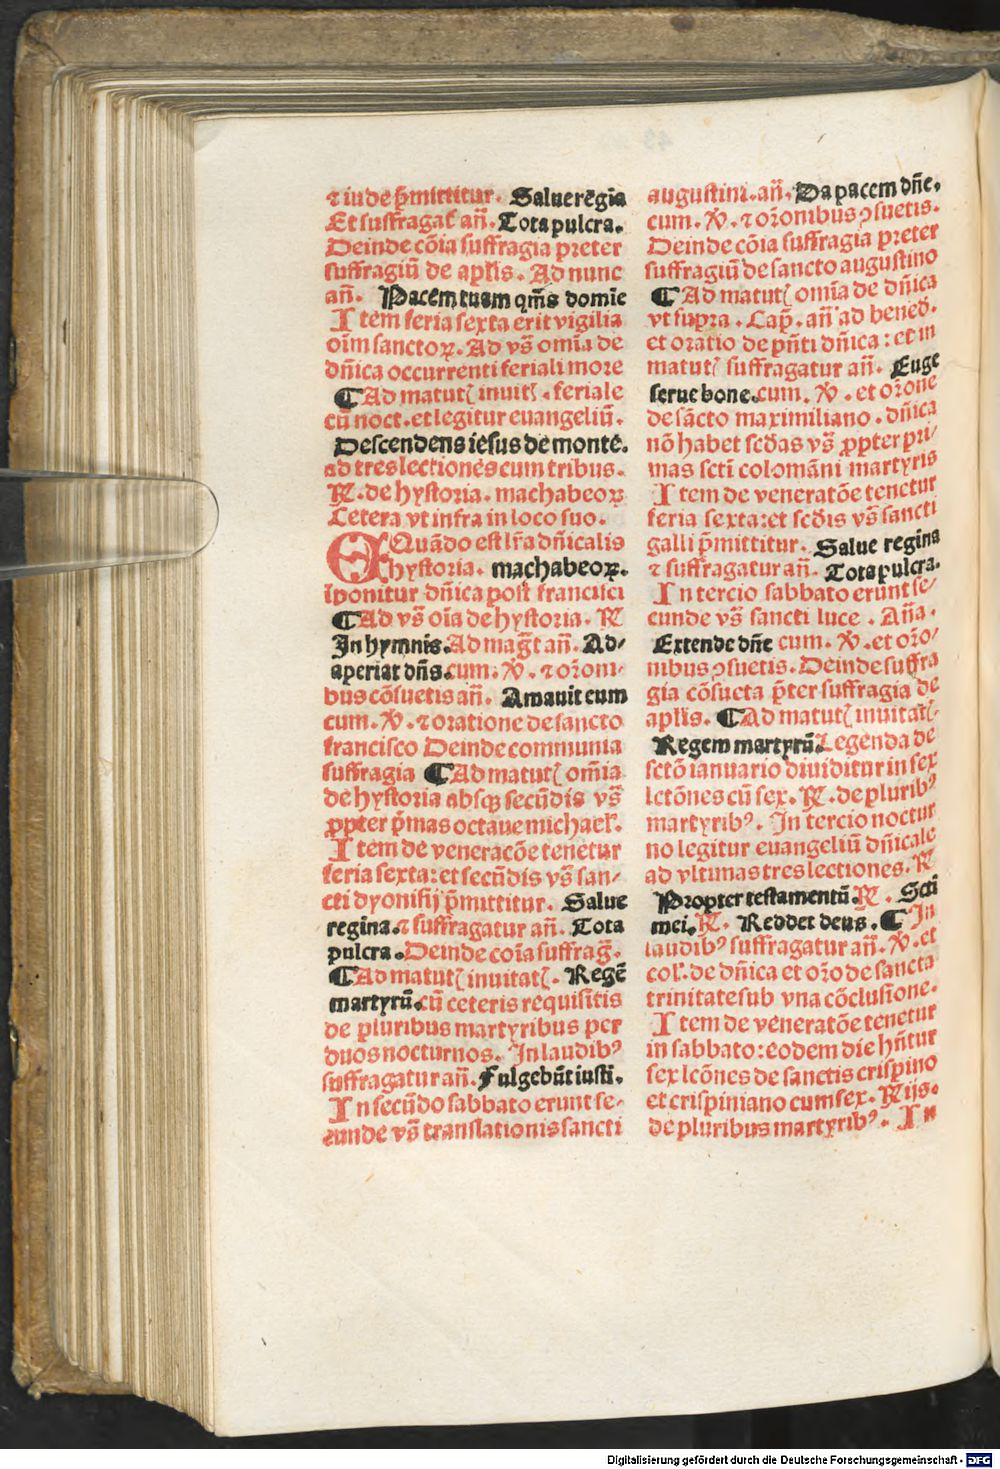 ⁊ iude p̄mittitur. Salue regīa
Et suffragať añ. Tota pulcra.
Deinde cōia suffragia preter
suffragiū de apĺis. Ad nunc
añ. Pacem tuam qm̄s domīe
Item feria sexta erit vigilia
oīm sanctoꝝ. Ad vs̄ omīa de
dñica occurrenti feriali more
¶ Ad matuť inuiť. feriale
cū noct. et legitur euangeliū.
Descendens iesus de monte.
ad tres lectiones cum tribus.
℟. de hystoria. machabeoꝝ
Cetera vt infra in loco suo.
Quādo est lr̄a dñicalis
hystoria. machabeoꝝ.
īponitur dñica post francisci
¶ Ad vs̄ oīa de hystoria. ℟
In hymnis. Ad maḡt añ. Ad-
aperiat dñs. cum. ℣. ⁊ or̄oni-
bus cōsuetis añ. Amauit eum
cum. ℣. ⁊ oratione de sancto
francisco Deinde communia
suffragia ¶ Ad matuť omīa
de hystoria absqꝫ secūdis vs̄
ꝓpter p̄mas octaue michaeĺ.
Item de veneracōe tenetur
feria sexta: et secūdis vs̄ san-
cti dyonisij p̄mittitur. Salue
regina. ⁊ suffragatur añ. Tota
pulcra. Deinde coīa suffraḡ.
¶ Ad matuť inuitať. Regē
martyrū. cū ceteris requisitis
de pluribus martyribus per
duos nocturnos. In laudibꝰ
suffragatur añ. Fulgebūt iusti.
In secūdo sabbato erunt se-
cunde vs̄ translationis sancti
augustini. añ. Da pacem dñe.
cum. ℣. ⁊ or̄onibus ꝯsuetis.
Deinde cōia suffragia preter
suffragiū de sancto augustino
¶ Ad matuť omīa de dñica
vt supra. Cap̄. añ ad bened̄.
et oratio de pñti dñica: et in
matuť suffragatur añ. Euge
serue bone. cum. ℣. et or̄one
de sācto maximiliano. dñica
nō habet scd̄as vs̄ ꝓpter pri-
mas scti colomāni martyris
Item de veneratōe tenetur
feria sexta: et scd̄is vs̄ sancti
galli p̄mittitur. Salue regina
⁊ suffragatur añ. Tota pulcra.
In tercio sabbato erunt se-
cunde vs̄ sancti luce. Añа.
Extende dñe cum. ℣. et or̄o-
nibus ꝯsuetis. Deinde suffra
gia cōsueta p̄ter suffragia de
apĺis. ¶ Ad matuť inuitať.
Regem martyrū. Legenda de
sctō ianuario diuiditur in sex
lctōnes cū sex. ℟. de pluribꝰ
martyribꝰ. In tercio noctur
no legitur euangeliū dñicale
ad vltimas tres lectiones. ℟
Propter testamentū. ℟. Scti
mei. ℟. Reddet deus. ¶ In
laudibꝰ suffragatur añ. ℣. et
coĺ. de dñica et or̄o de sancta
trinitate sub vna cōclusione.
Item de veneratōe tenetur
in sabbato: eodem die hñtur
sex lcōnes de sanctis crispino
et crispiniano cum sex. ℟ijs.
de pluribus martyribꝰ. In
Digitalisierung gefördert durch die Deutsche Forschungsgemeinschaft - DFG